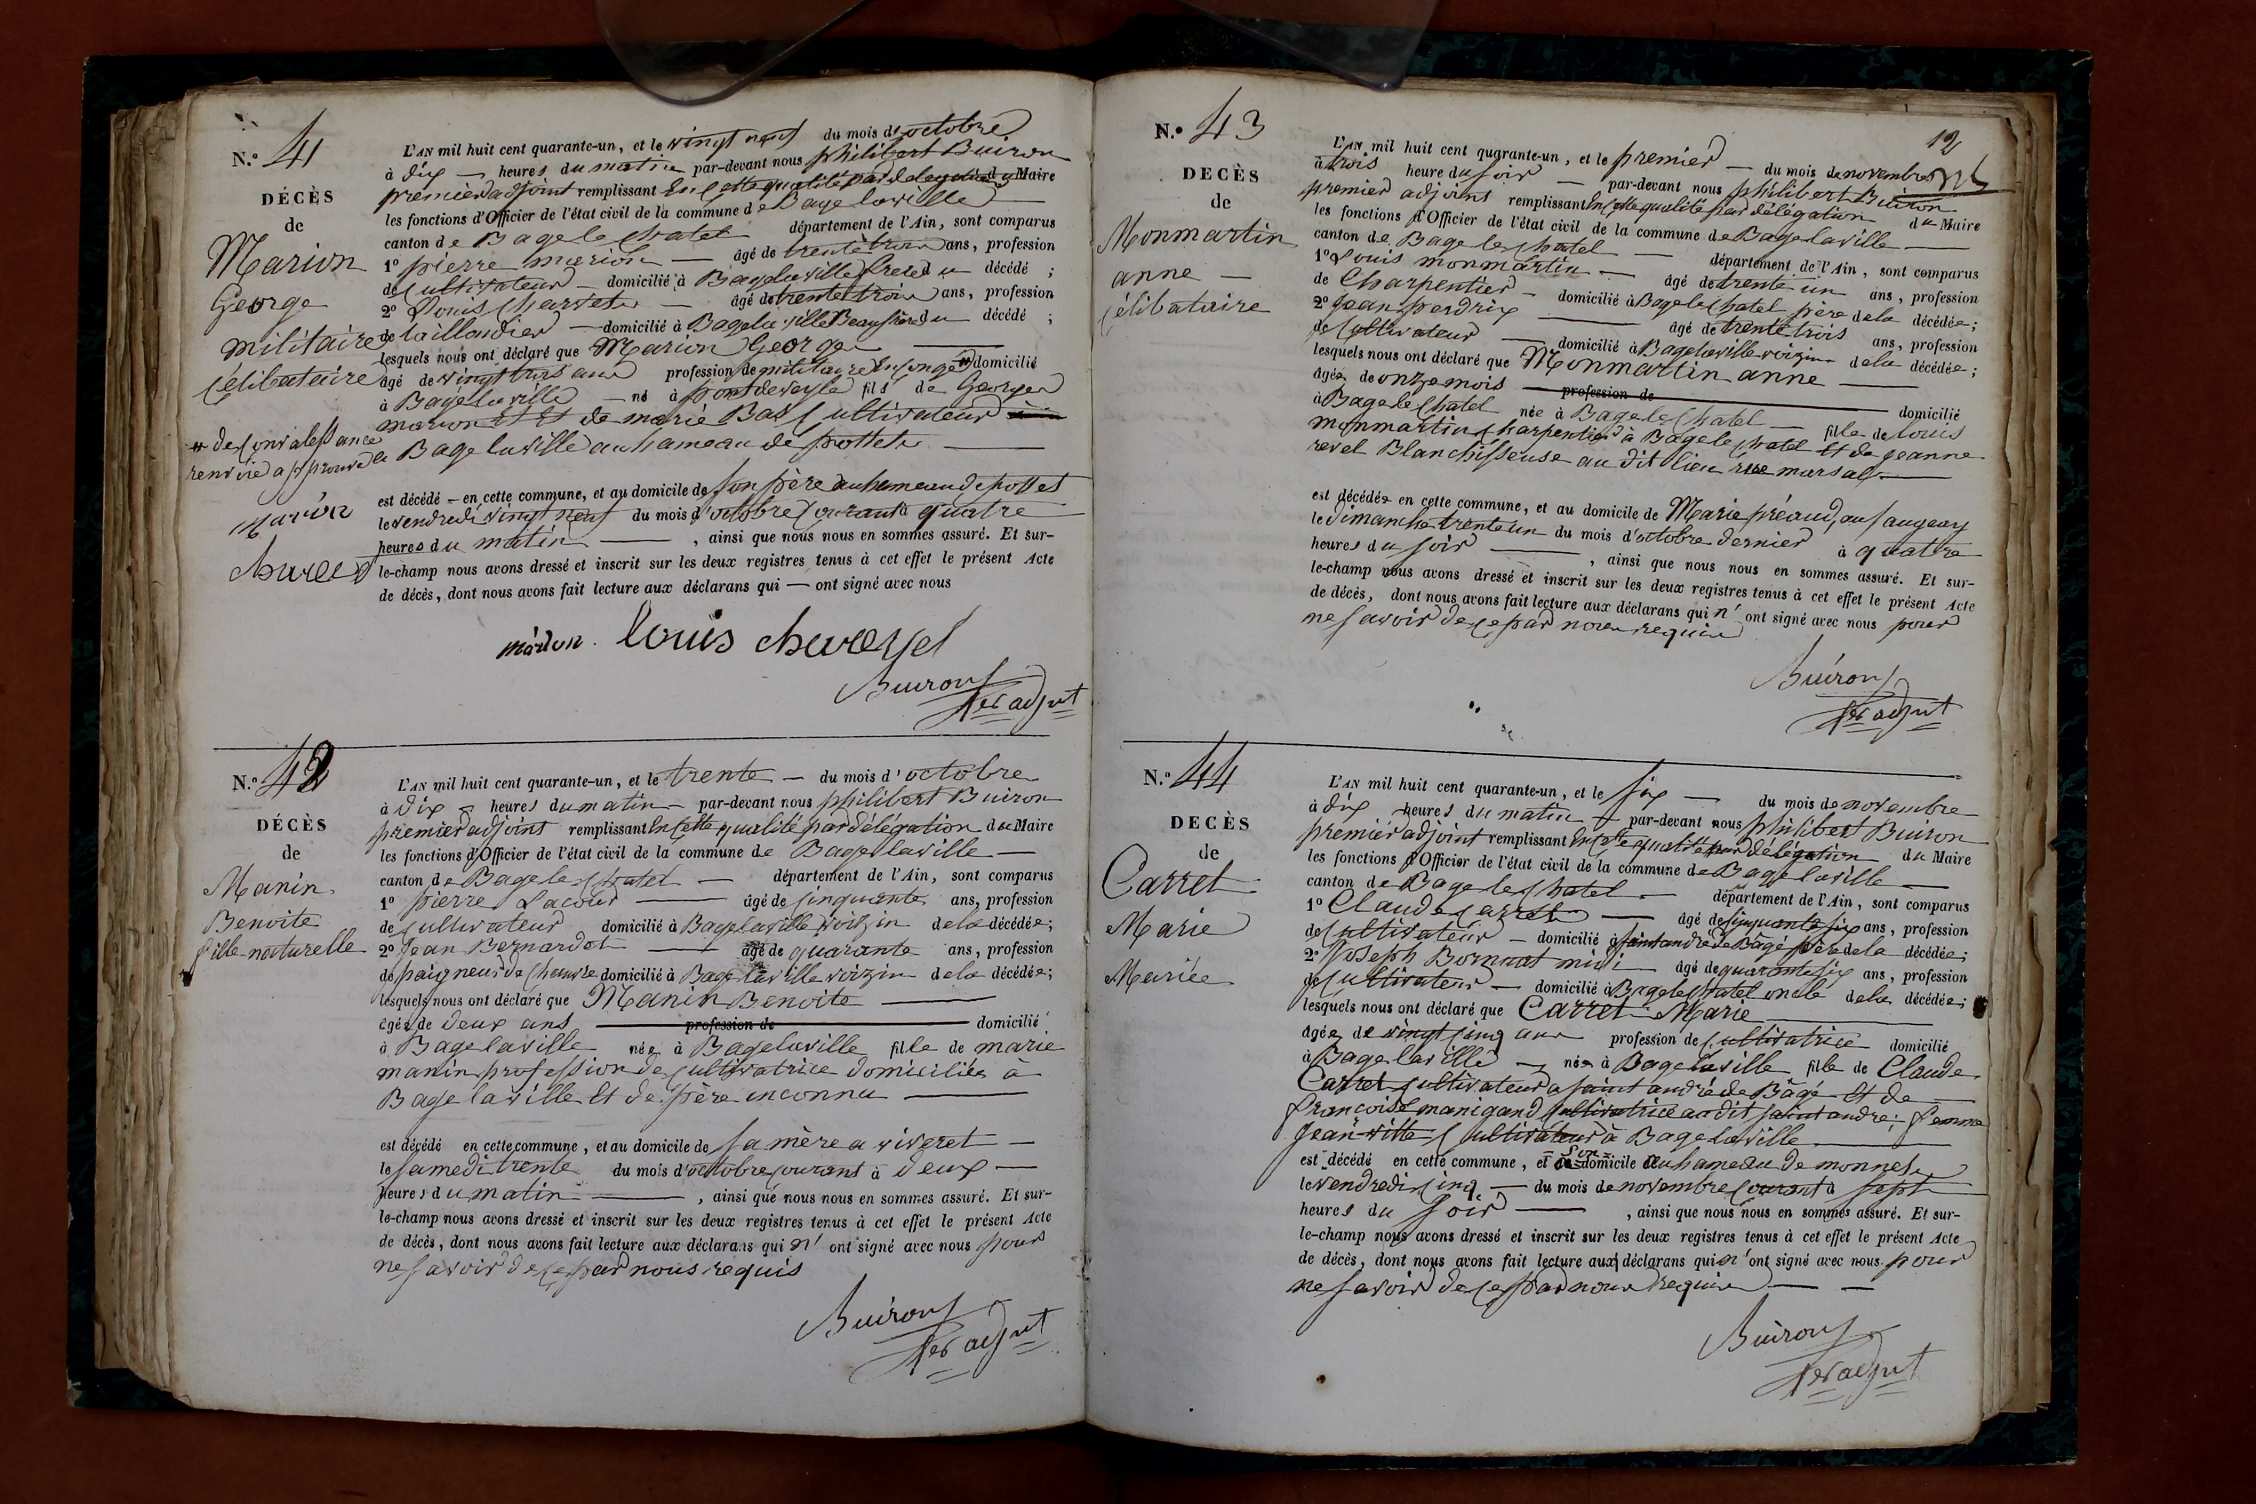 N.o 41
DÉCÈS
de
Marion
George
militaire
célibataire
* de convalessance
renvoie approuvé
marion
L'AN mil huit cent quarante-un, et le vingt neuf du mois d'octobre
à dix — heures du matin par-devant nous philibert Buiron
premier adjoint remplissant en cette qualité par délégation du Maire
les fonctions d'Officier de l'état civil de la commune de Bagelaville
canton de Bage le chatel département de l'Ain, sont comparus
1o pierre marion — âgé de trente trois ans, profession
de cultivateur — domicilié à Bagelaville frere du décédé ;
2o Louis Charvet — âgé de trente trois ans, profession
de taillandier — domicilié à Bagelaville Beaufrere du décédé ;
lesquels nous ont déclaré que Marion George
âgé de vingt trois ans profession de militaire en congé * domicilié
à Bagelaville — né à pontdevesle fils de George
marion et de marie Bas cultivateur
a Bagelaville au hameau de pottets
est décédé — en cette commune, et au domicile de son père au hameau de pottets
le vendredi vingt neuf du mois d'octobre courant à quatre
heures du matin , ainsi que nous nous en sommes assuré. Et sur-
le-champ nous avons dressé et inscrit sur les deux registres tenus à cet effet le présent Acte
de décès, dont nous avons fait lecture aux déclarans qui — ont signé avec nous
marion louis charvet
Buiron
1er adjnt
N.o 42
DÉCÈS
de
Manin
Benoite
fille naturelle
L'AN mil huit cent quarante-un, et le trente — du mois d'octobre
à dix heures du matin — par-devant nous philibert Buiron
premier adjoint remplissant en cette qualité par délégation du Maire
les fonctions d'Officier de l'état civil de la commune de Bagelaville
canton de Bage le chatel — département de l'Ain, sont comparus
1o pierre Lacour âgé de cinquante ans, profession
de cultivateur domicilié à Bagelaville voizin de la décédée;
2o Jean Bernardot âgé de quarante ans, profession
de paigneur de chanvre domicilié à Bagelaville voizin de la décédée;
lesquels nous ont déclaré que Manin Benoite
âgée de deux ans profession de domicilié
à Bagelaville née à Bagelaville fille de marie
manin profession de cultivatrice domiciliée à
Bagelaville et de père inconnu
est décédé en cette commune, et au domicile de sa mère a viveret —
le samedi trente du mois d'octobre courant à deux —
heures du matin , ainsi que nous nous en sommes assuré. Et sur-
le-champ nous avons dressé et inscrit sur les deux registres tenus à cet effet le présent Acte
de décès, dont nous avons fait lecture aux déclarans qui n' ont signé avec nous pour
ne savoir de ce par nous requis
Buiron
1er adjnt
12
N.o 43
DECÈS
de
Monmartin
anne —
célibataire
L'AN mil huit cent quarante-un, et le premier — du mois de novembre
à trois heure du soir — par-devant nous philibert Buiron
premier adjoint remplissant en cette qualité par délégation du Maire
les fonctions d'Officier de l'état civil de la commune de Bagelaville
canton de Bage le chatel — département de l'Ain, sont comparus
1o Louis monmartin — âgé de trente un ans, profession
de Charpentier — domicilié à Bage le chatel père de la décédée;
2o Jean perdrix âgé de trente trois ans, profession
de cultivateur — domicilié à Bagelaville voizin de la décédée;
lesquels nous ont déclaré que Monmartin anne
âgée de onze mois profession de domicilié
à Bage le chatel née à Bage le chatel — fille de louis
monmartin charpentier à Bage le chatel et de jeanne
revel Blanchisseuse au dit lieu rue marsal
est décédée en cette commune, et au domicile de Marie préaud, au saugeay
le dimanche trente un du mois d'octobre dernier à quatre
heures du soir , ainsi que nous nous en sommes assuré. Et sur-
le-champ nous avons dressé et inscrit sur les deux registres tenus à cet effet le présent Acte
de décès, dont nous avons fait lecture aux déclarans qui n' ont signé avec nous pour
ne savoir de ce par nous requis
Buiron
1er adjnt
N.o 44
DECÈS
de
Carret
Marie
Mariée
L'AN mil huit cent quarante-un, et le six — du mois de novembre
à dix heures du matin — par-devant nous philibert Buiron
premier adjoint remplissant en cette qualité par délégation du Maire
les fonctions d'Officier de l'état civil de la commune de Bagelaville
canton de Bage le chatel — département de l'Ain, sont comparus
1o Claude carret — âgé de cinquante six ans, profession
de cultivateur — domicilié à saint andré de Bagé père de la décédée;
2o Joseph Bornnat midi âgé de quarante six ans, profession
de cultivateur — domicilié à Bage le chatel oncle de la décédée;
lesquels nous ont déclaré que Carret Marie
âgée de vingt cinq ans profession de cultivatrice domicilié
à Bagelaville — née à Bagelaville fille de Claude
Carret cultivateur a saint andré de Bagé et de
françoise manigand cultivatrice au dit saint andré; femme
Jean vitte cultivateur à Bagelaville
est décédé en cette commune, et à son domicile au hameau de monnet
le vendredi cinq — du mois de novembre courant à sept
heures du soir , ainsi que nous nous en sommes assuré. Et sur-
le-champ nous avons dressé et inscrit sur les deux registres tenus à cet effet le présent Acte
de décès, dont nous avons fait lecture aux déclarans qui n'ont signé avec nous pour
ne savoir de ce par nous requis — —
Buiron
1er adjnt